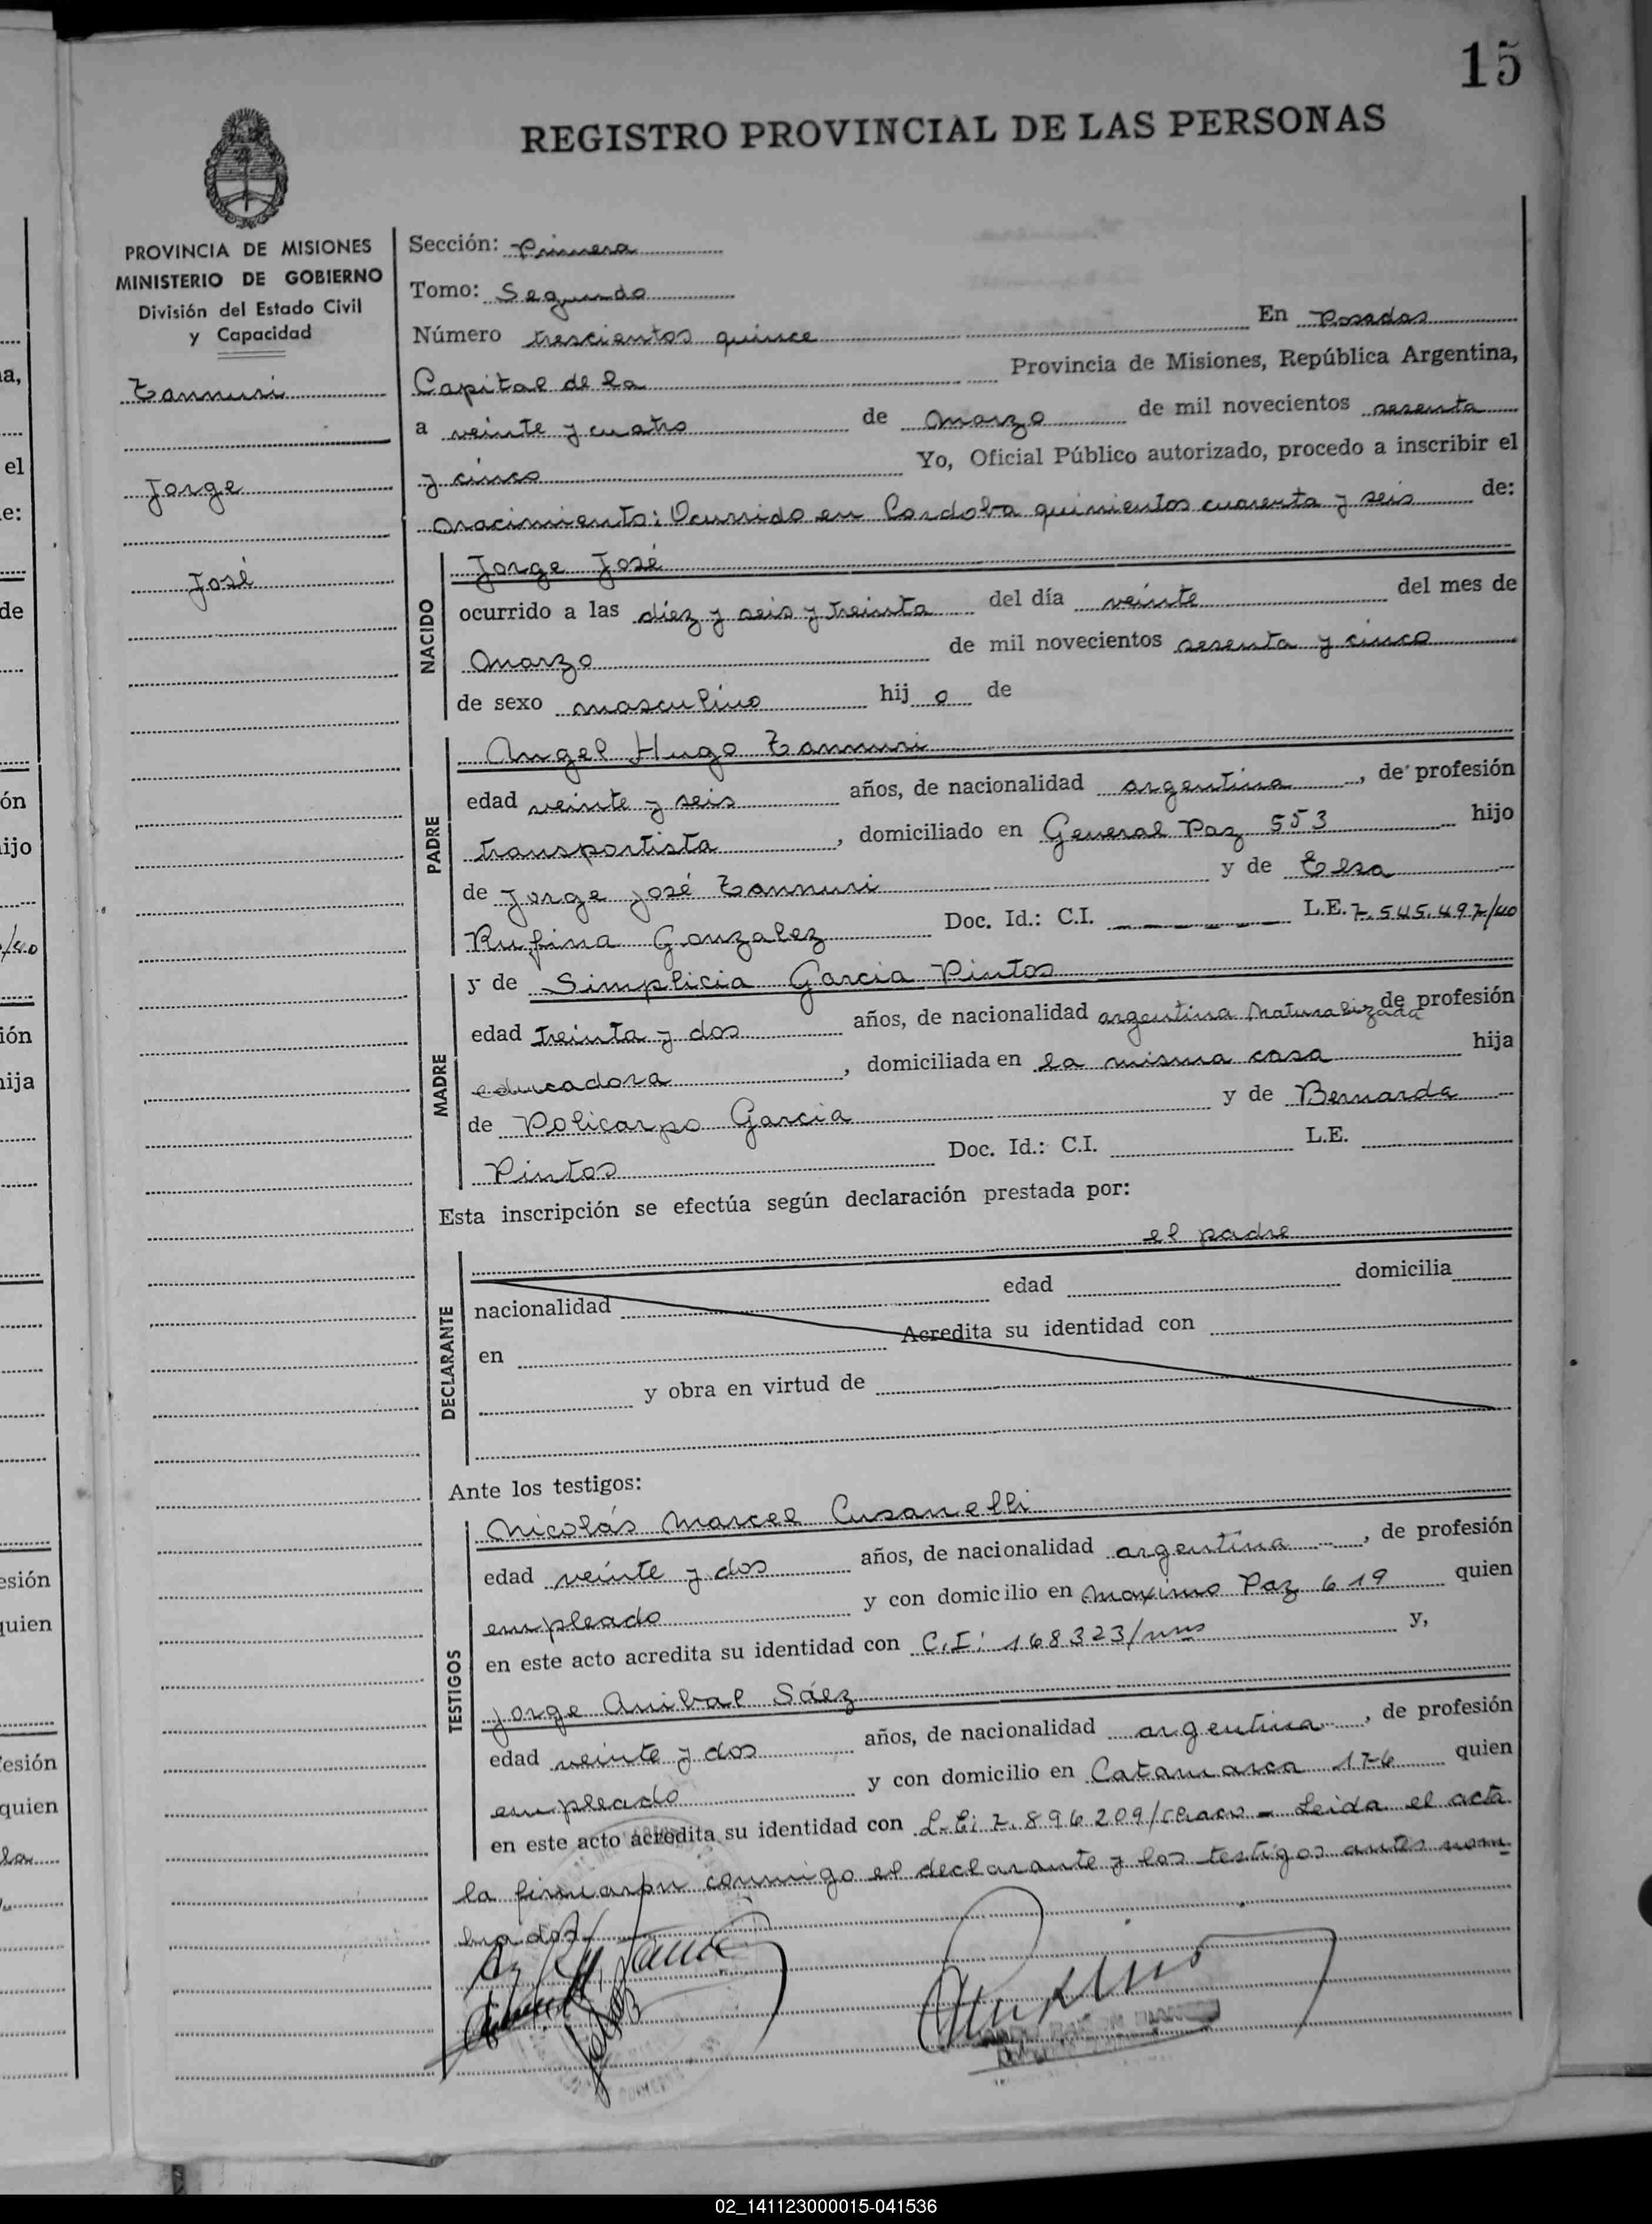 15
REGISTRO PROVINCIAL DE LAS PERSONAS
PROVINCIA DE MISIONES
MINISTERIO DE GOBIERNO
División del Estado Civil
y Capacidad
Zannuri
Jorge
José
Sección: Primera
Tomo: Segundo
Número trescientos quince En Posadas
Capital de la Provincia de Misiones, República Argentina,
a veinte y cuatro de Marzo de mil novecientos sesenta
y cinco Yo, Oficial Público autorizado, procedo a inscribir el
nacimiento: Ocurrido en Cordoba quinientos cuarenta y seis de:
NACIDO
Jorge José
ocurrido a las diez y seis y treinta del día veinte del mes de
Marzo de mil novecientos sesenta y cinco
de sexo masculino hij o de
PADRE
Angel Hugo Zannuri
edad veinte y seis años, de nacionalidad argentina, de profesión
transportista, domiciliado en General Paz 553 hijo
de Jorge José Zannuri y de Elsa
Rufina Gonzalez Doc. Id.: C.I. L.E. 7.545.497/40
MADRE
y de Simplicia Garcia Pintos
edad treinta y dos años, de nacionalidad argentina Naturalizada de profesión
educadora, domiciliada en la misma casa hija
de Policarpo Garcia y de Bernarda
Pintos Doc. Id.: C.I. L.E.
Esta inscripción se efectúa según declaración prestada por:
el padre
DECLARANTE
nacionalidad edad domicilia
en Acredita su identidad con
y obra en virtud de
Ante los testigos:
TESTIGOS
Nicolás Marcel Cusanelli
edad veinte y dos años, de nacionalidad argentina, de profesión
empleado y con domicilio en Maximo Paz 619 quien
en este acto acredita su identidad con C.I: 168323/mns y,
Jorge Anibal Sáez
edad veinte y dos años, de nacionalidad argentina, de profesión
empleado y con domicilio en Catamarca 176 quien
en este acto acredita su identidad con L.E: 7.896209/chaco - Leida el acta
la firmaron conmigo el declarante y los testigos antes nom
brados.
02_141123000015-041536